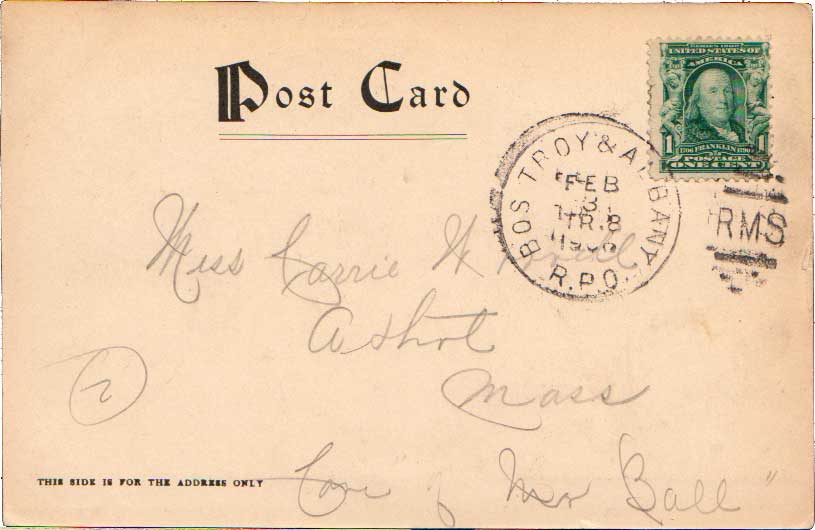 Post Card
SERIES 1902
UNITED STATES OF
AMERICA
1 1706 FRANKLIN 1790 1
POSTAGE
ONE CENT
BOS TROY & ALBANY
FEB
3
TR.8
1906
R.P.O.
RMS
Miss Carrie W
Athol
Mass
2
THIS SIDE IS FOR THE ADDRESS ONLY
Care of Mrs Ball "